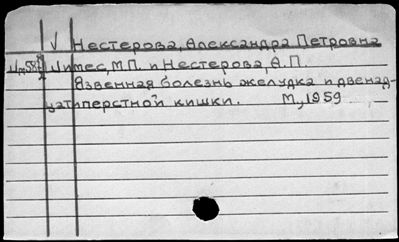 √ Нестерова, Александра Петровна
Цимес, М.П. и Нестерова, А.П.
Язвенная болезнь желудка и двенад-
цатиперстной кишки. М., 1959